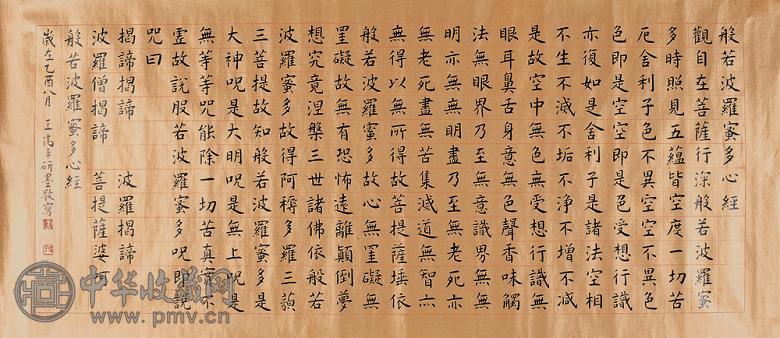 般若波羅蜜多心經
觀自在菩薩行深般若波羅蜜
多時照見五蘊皆空度一切苦
厄舍利子色不異空空不異色
色即是空空即是色受想行識
亦復如是舍利子是諸法空相
不生不滅不垢不淨不增不減
是故空中無色無受想行識無
眼耳鼻舌身意無色聲香味觸
法無眼界乃至無意識界無無
明亦無無明盡乃至無老死亦
無老死盡無苦集滅道無智亦
無得以無所得故菩提薩埵依
般若波羅蜜多故心無罣礙無
罣礙故無有恐怖遠離顛倒夢
想究竟涅槃三世諸佛依般若
波羅蜜多故得阿耨多羅三藐
三菩提故知般若波羅蜜多是
大神咒是大明咒是無上咒是
無等等咒能除一切苦真實不
虛故說般若波羅蜜多咒即說
咒曰
揭諦揭諦 波羅揭諦
波羅僧揭諦 菩提薩婆訶
般若波羅蜜多心經
歲在乙酉八月 研墨敬寫
中华收藏网
www.pmv.cn